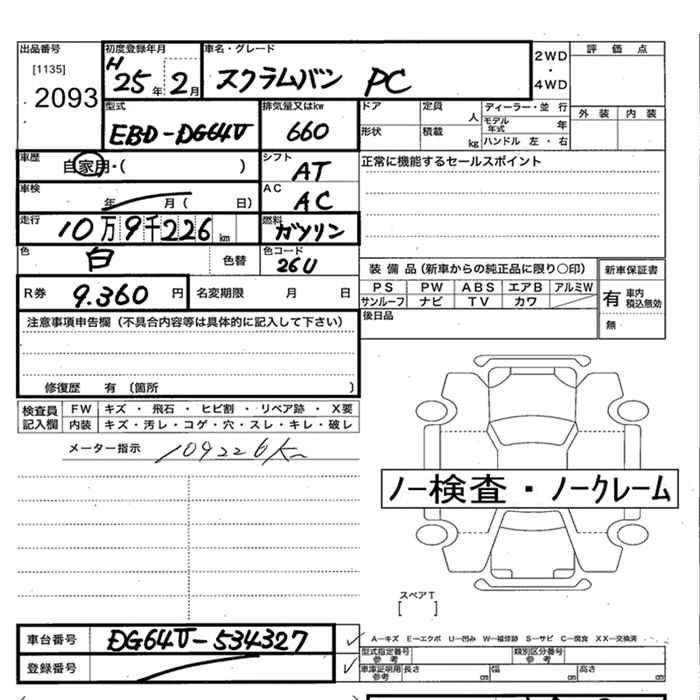 出品番号 初度登録年月 車名・グレード 2WD ・ 4WD 評 価 点
[1135] 2093 H 25年 2月 スクラムバン PC
外 装 内 装
型式 EBD-DG64V 排気量又はkw 660 ドア 定員 人 ディーラー・並 行
モデル年式 年
形状 積載 kg ハンドル 左・右
車歴 自家用・( ) シフト AT 正常に機能するセールスポイント
車検 年 月( 日) AC AC
走行 10万9千226 km 燃料 ガソリン
色 白 色替 色コード 26U
装 備 品(新車からの純正品に限り○印) 新車保証書
R券 9.360 円 名変期限 月 日
PS PW ABS エアB アルミW 有 車内積込無効
サンルーフ ナビ TV カワ
後日品 無
注意事項申告欄(不具合内容等は具体的に記入して下さい)
修復歴 有 〔箇所 〕
検査員記入欄 FW キズ・飛石・ヒビ割・リペア跡・X要
内装 キズ・汚レ・コゲ・穴・スレ・キレ・破レ
メーター指示 109226km
ノー検査・ノークレーム
スペアT
[ ]
車台番号 DG64V-534327
A―キズ E―エクボ U―凹み W―補修跡 S―サビ C―腐食 XX―交換済
登録番号
型式指定番号 参考 類別区分番号 参考
車庫証明用 参考 長さ cm 幅 cm 高さ cm